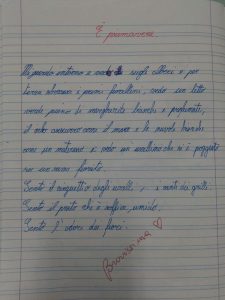 È primavera
Mi guardo intorno e vedo sugli alberi e per
terra abbracciare i primi fiorellini, vedo un letto
verde pieno di margherite bianche e profumate,
il cielo azzurro come il mare e le nuvole bianche
come un materasso e vedo un uccellino che si è poggiato
su un ramo fiorito.
Sento il cinguettio degli uccelli, i canti dei grilli.
Sento il prato che è soffice, umido.
Sento l'odore dei fiori.
Bravissima